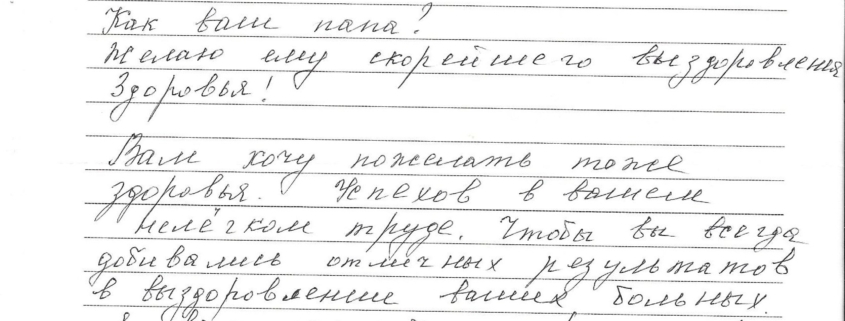 Как ваш папа?
Желаю ему скорейшего выздоровления
Здоровья!
Вам хочу пожелать тоже
здоровья. Успехов в вашем
нелёгком труде. Чтобы вы всегда
добивались отличных результатов
в выздоровлении ваших больных.